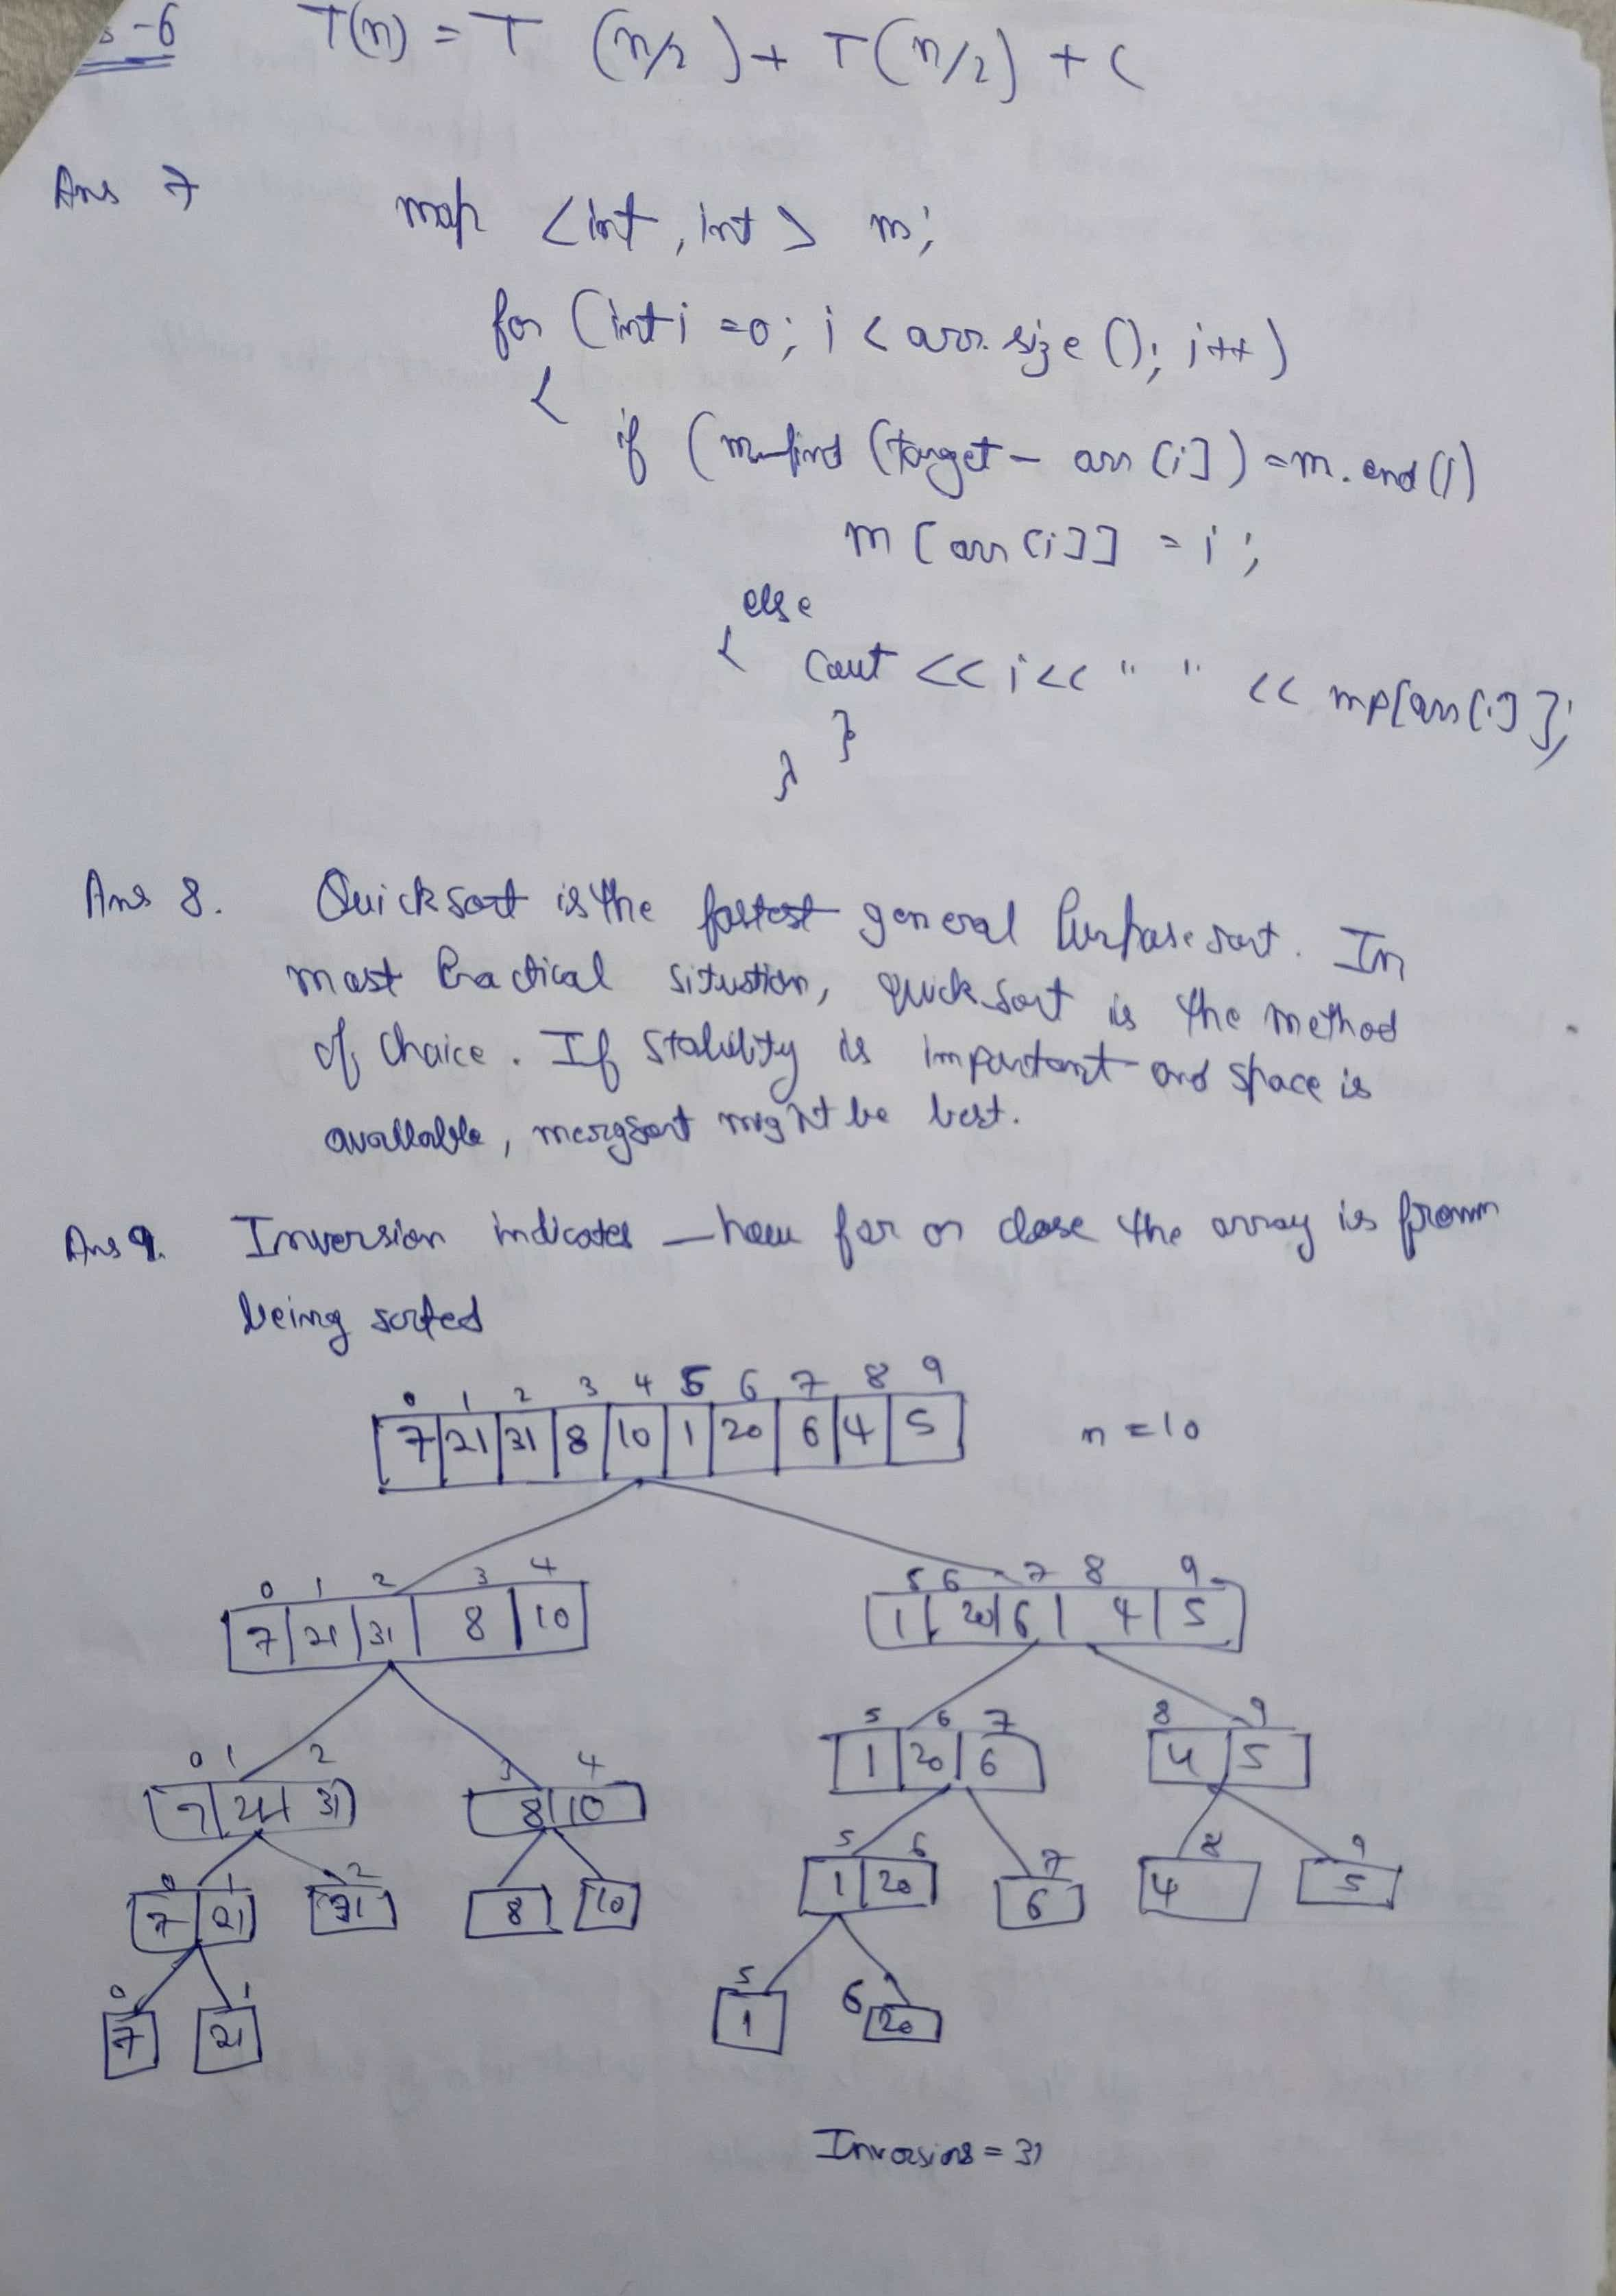 s-6 T(n) = T (n/2) + T(n/2) + C
Ans 7
map <int, int> m;
for (int i =0; i < arr.size(); i++)
{
if (m.find (target - arr[i]) = m.end())
m[arr[i]] = i;
else
{ cout << i << " " << mp[arr[i]];
}
}
Ans 8. Quicksort is the fastest general purpose sort. In
most Practical situstion, quick sort is the method
of choice. If stability is important and space is
available, mergsort might be best.
Ans 9. Inversion indicates - how far or close the array is from
being sorted
0 1 2 3 4 5 6 7 8 9
7 21 31 8 10 1 20 6 4 5 n = 10
0 1 2 3 4 5 6 7 8 9
7 21 31 8 10 1 20 6 4 5
0 1 2 3 4 5 6 7 8 9
7 21 31 8 10 1 20 6 4 5
0 1 2 5 6 7 8 9
7 21 31 8 10 1 20 6 4 5
0 1 5 6
7 21 1 20
Inversions = 31